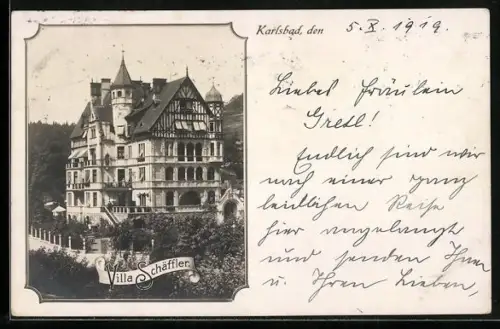 Karlsbad, den 5. X. 1919.
Liebes Fräulein
Gretl!
Endlich sind wir
nach einer ganz
leidlichen Reise
hier angelangt
und senden Ihnen
u. Ihren Lieben,
Villa Schäffler